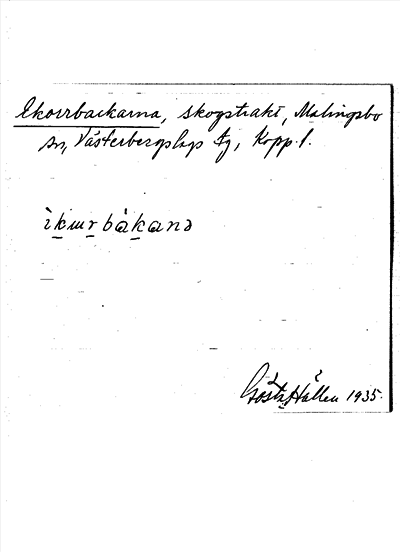 Ekorrbackarna, skogstrakt, Malingsbo
sn, Västerbergslags tg, Kopp. l.
ìkɯrbàkanə
Gösta Hallen 1935.